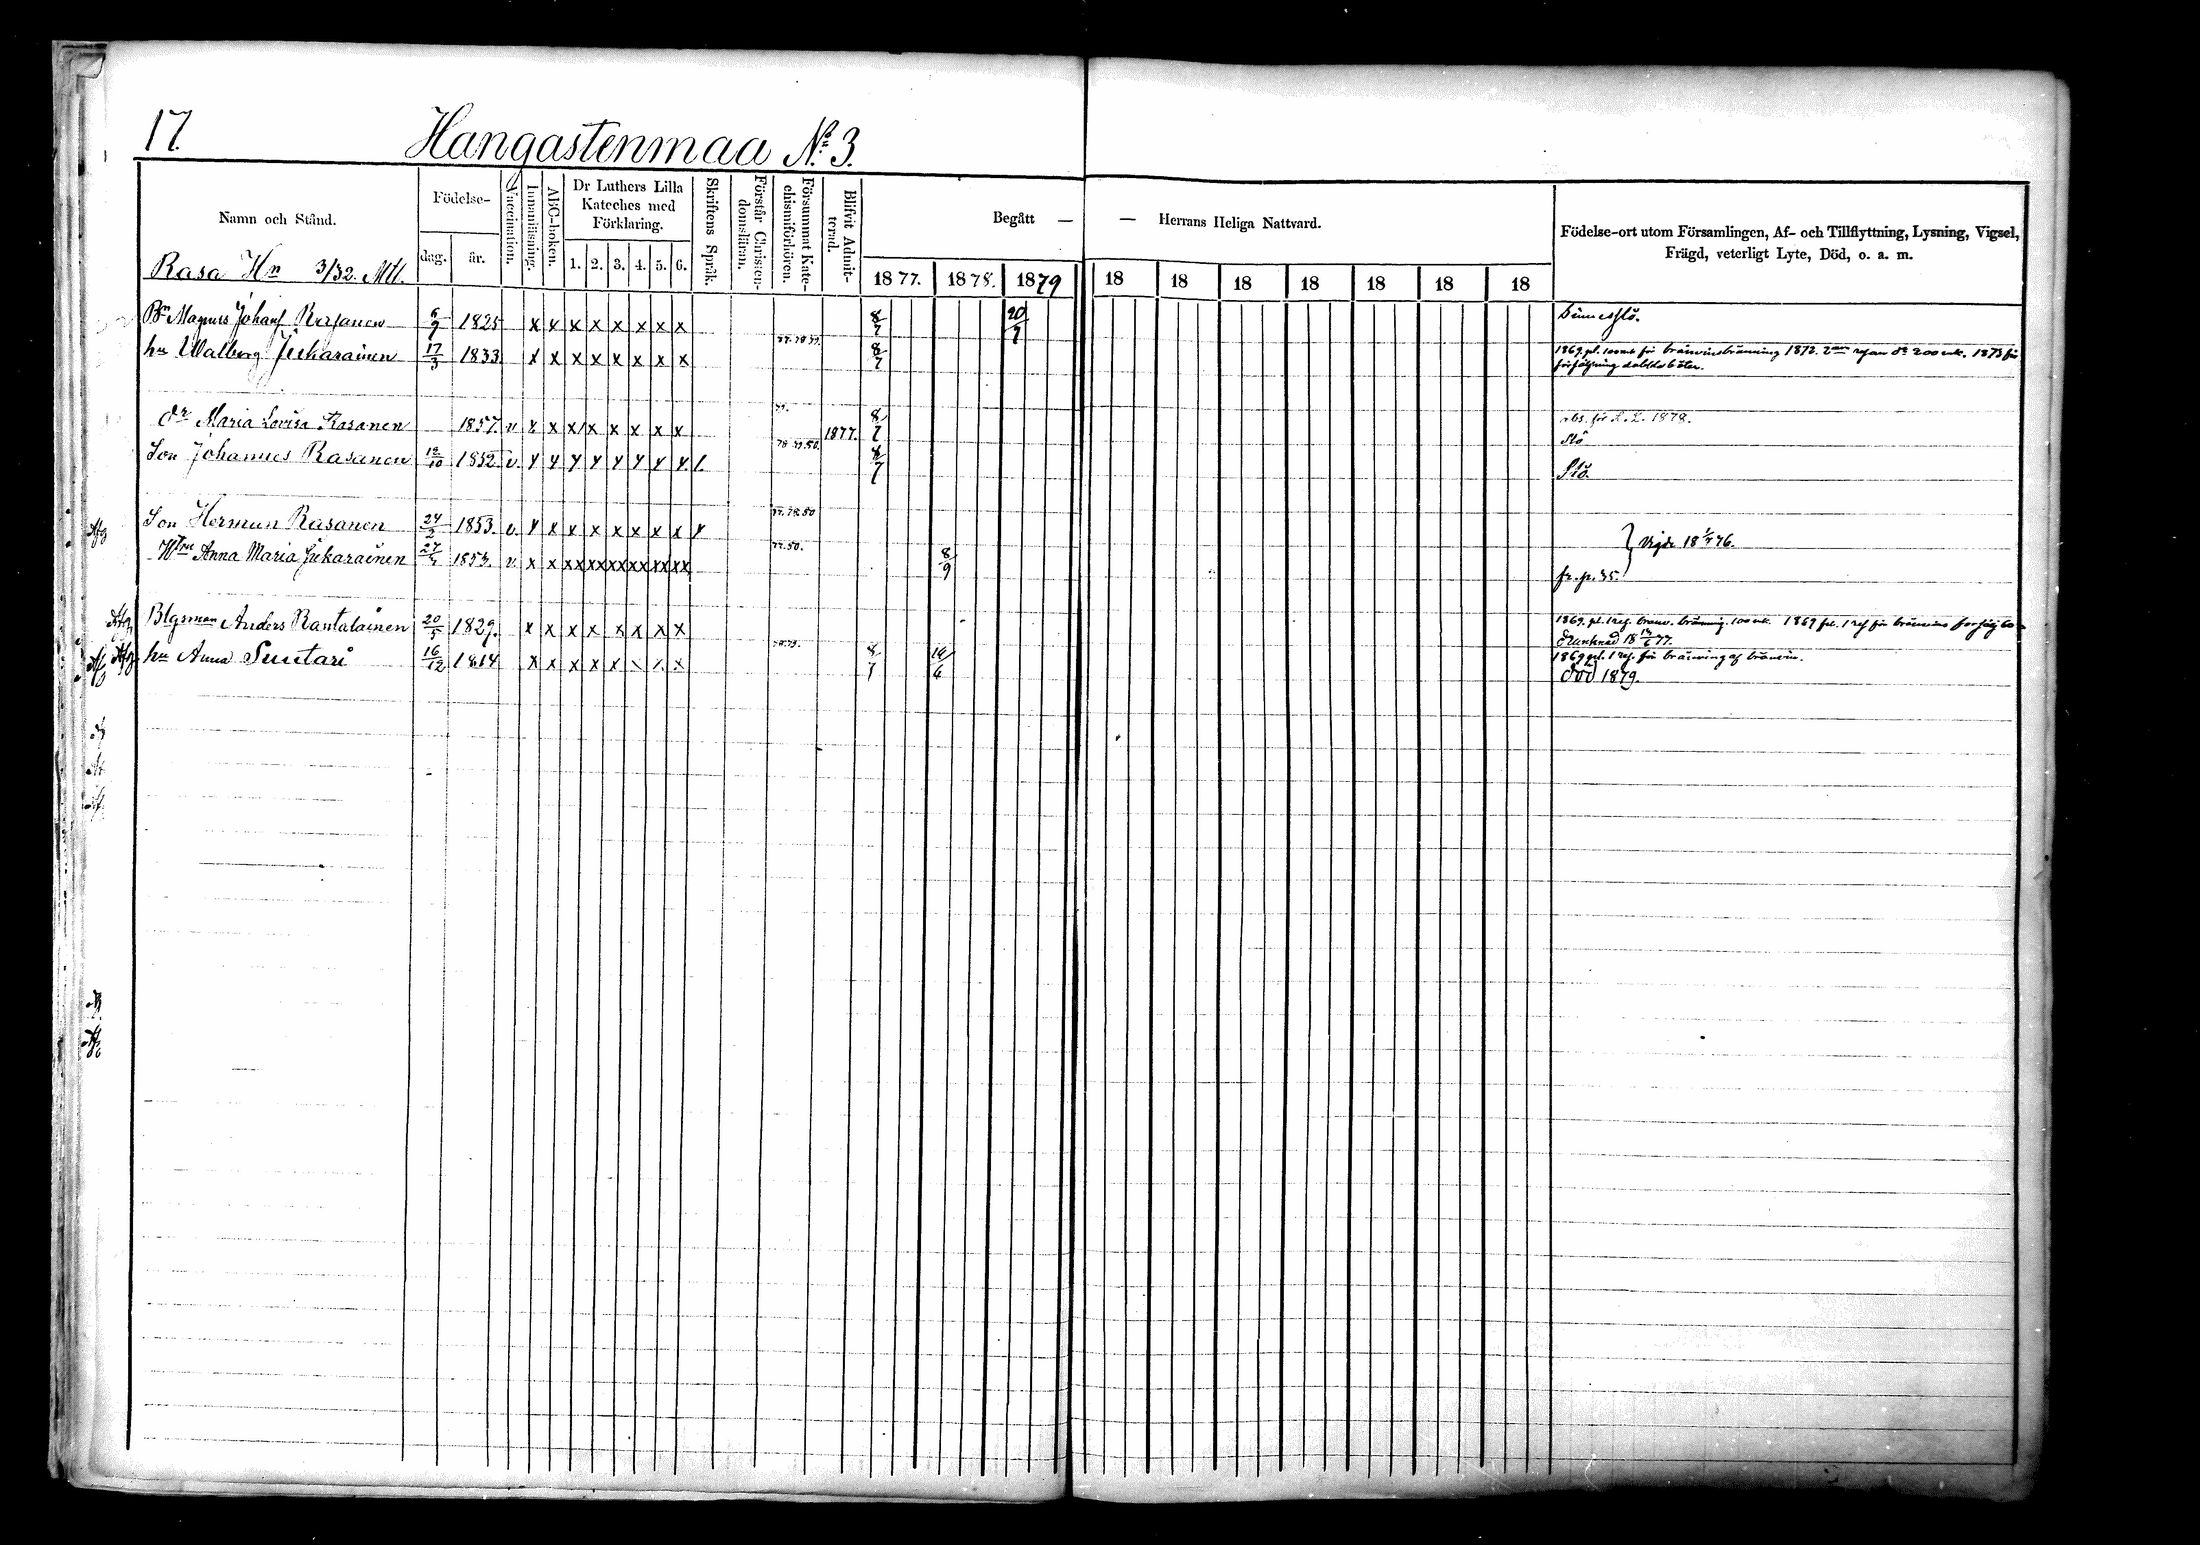 17.
Hangastenmaa No. 3.
Namn och Stånd.
Födelse-
dag.
år.
Vaccination.
Innanläsning.
ABC-boken.
Dr Luthers Lilla
Kateches med
Förklaring.
1. 2. 3. 4. 5. 6.
Skriftens Språk.
Förstår Christen-
domsläran.
Försummat Kate-
chismiförhören.
Blifvit Admit-
terad.
Begått — — Herrans Heliga Nattvard.
1877. 1878. 1879 18 18 18 18 18 18 18
Födelse-ort utom Församlingen, Af- och Tillflyttning, Lysning, Vigsel,
Frägd, veterligt Lyte, Död, o. a. m.
Rasa Hn 3/32. Mtl.
Magnus Johansf Rasanen 6/9 1825 x x x x x x x x 8/7 20/7
hu Walborg Jukarainen 17/3 1833. x x x x x x x x 77.78.79. 8/7 1869. pl. för bränvinsbränning 1872. 200 mk. 1873 för
försäljning
dr Maria Lovisa Rasanen 1857. v. x x x x x x x x 77. 1877. 8/7 1878.
Son Johannes Rasanen 12/10 1852. v. 8/7 Slö.
Son Herman Rasanen 24/2 1853. v. x x x x x x x
Hru Anna Maria Jukarainen 1853. v. x x xx xx xx xx xx xx 77.80. 8/9 Vigde 18 76.
fr. p. 35.
Anders Rantalainen 20/5 1829. x x x x x x x x 1869. pl. 1 bränning 100 mk. 1869 pl. för bränvins
Drunknad 18 77.
hu Anna Suntari 16/12 1814 x x x x x x x x 8/7 1869 pl. för bränning af bränvin.
Död 1879.